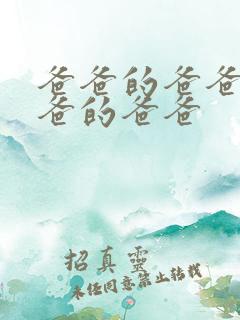 爸爸的爸爸
爸的爸爸
招真靈
未经同意禁止转载